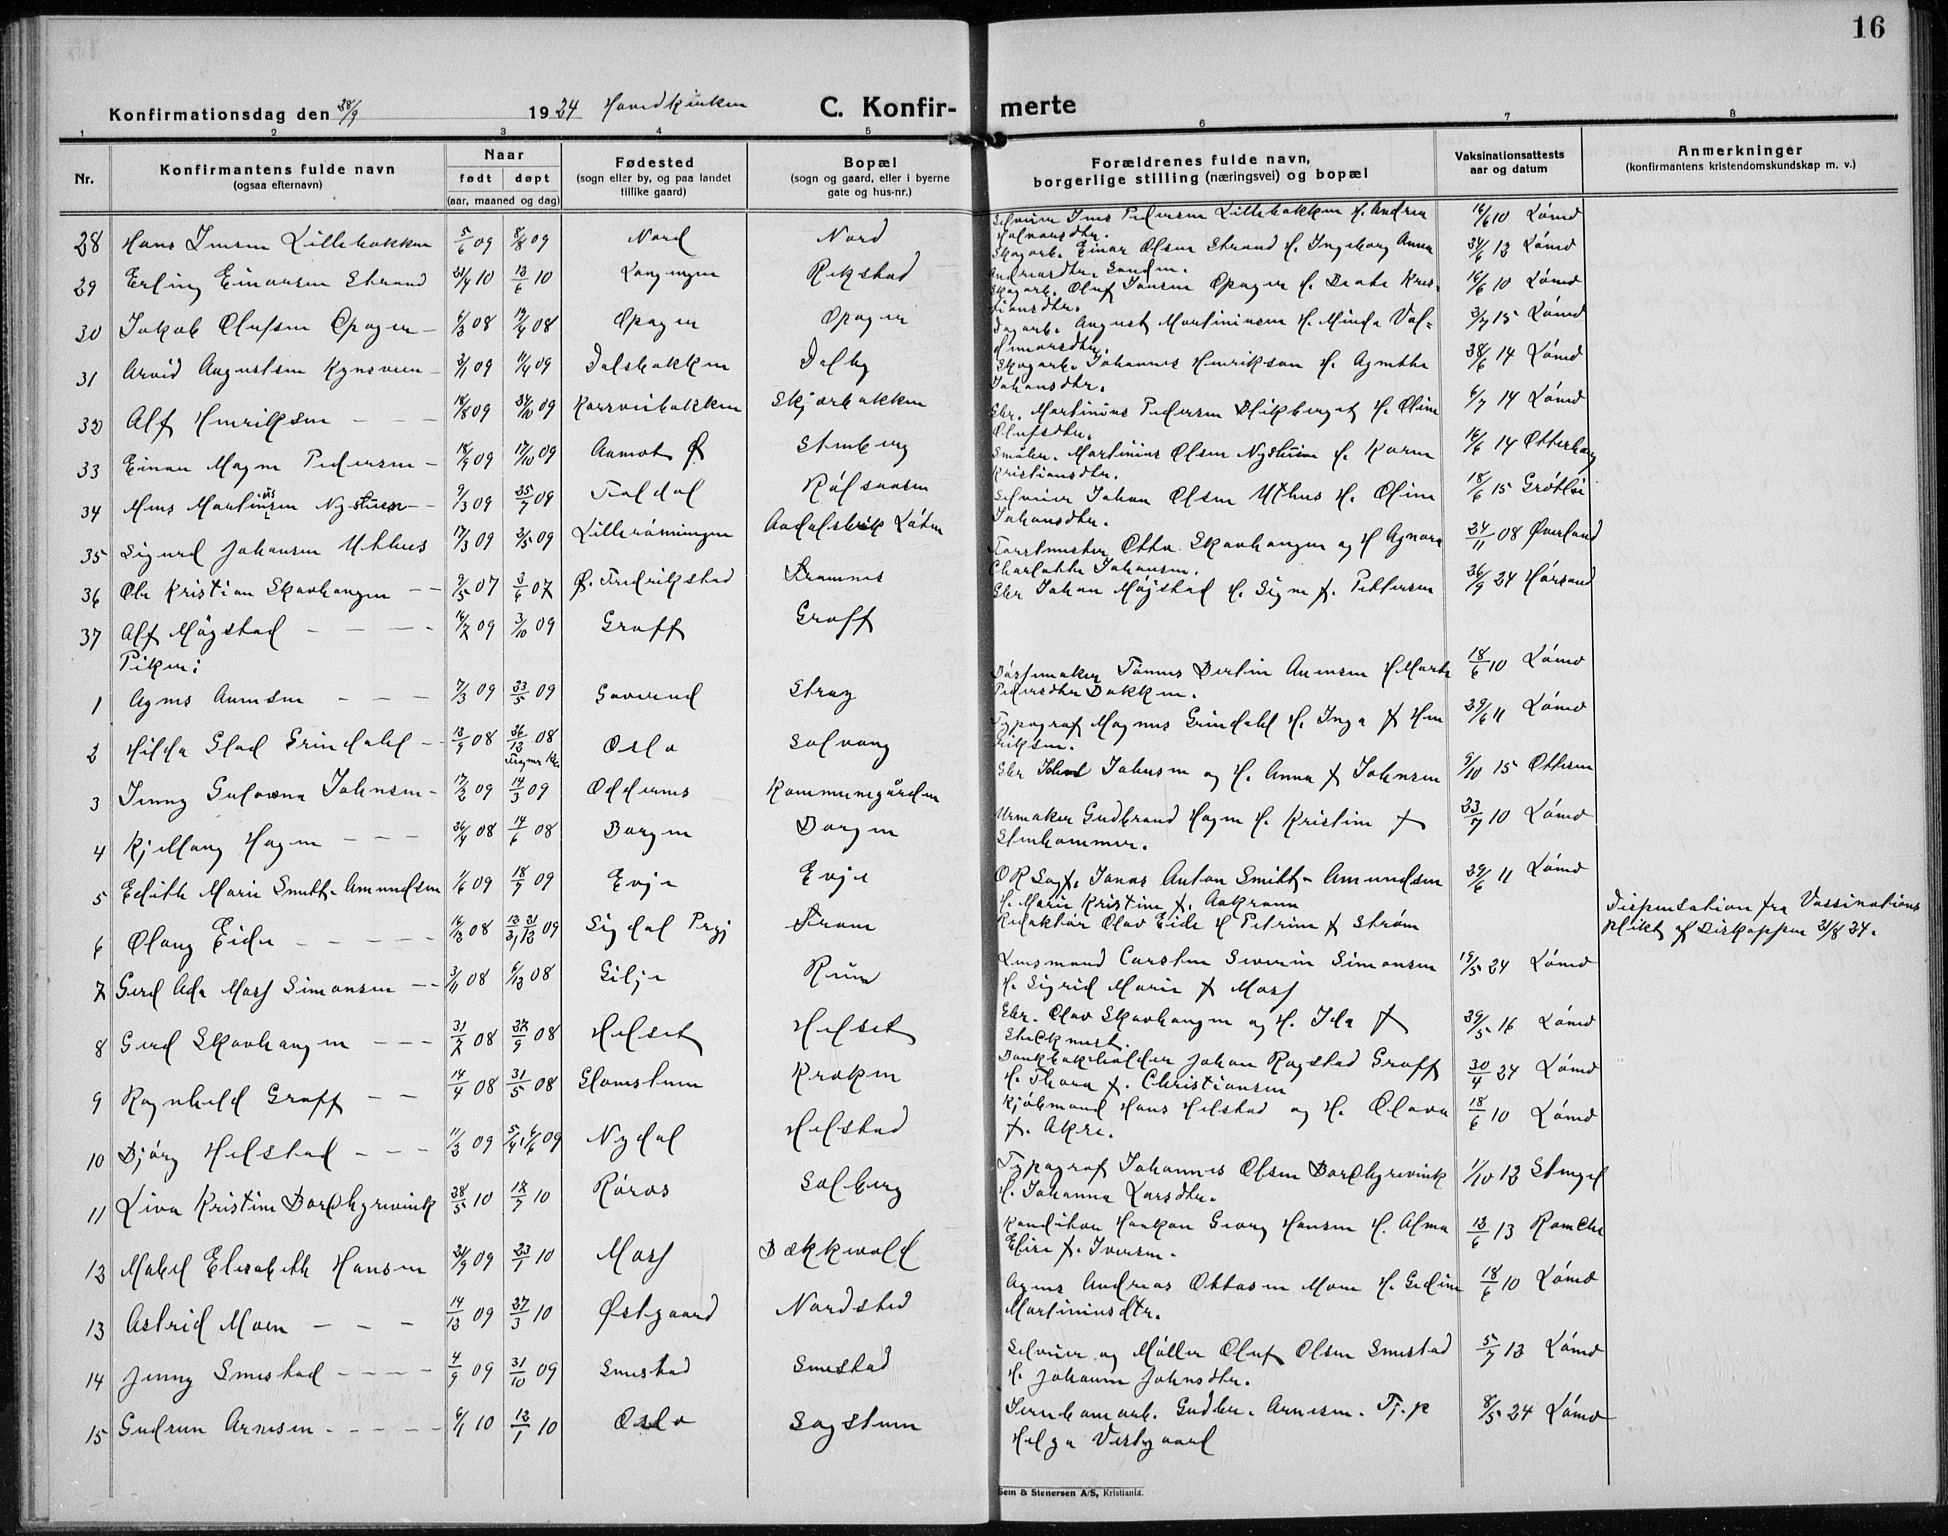 16
Konfirmationsdag den 28/9 1924 Hovedkirken C. Konfir- merte
1 2 3 4 5 6 7 8
Nr. Konfirmantens fulde navn (ogsaa efternavn) Naar født døpt (aar, maaned og dag) Fødested (sogn eller by, og paa landet tillike gaard) Bopæl (sogn og gaard, eller i byerne gate og hus-nr.) Forældrenes fulde navn, borgerlige stilling (næringsvei) og bopæl Vaksinationsattests aar og datum Anmerkninger (konfirmantens kristendomskundskap m. v.)
28 Hans Jensen Lillebakken 5/6 09 8/8 09 Nord Nord Selveier Jens Pedersen Lillebakken H. Andrea Halvorsdtr. 16/6 10 Lømo
29 Erling Einarsen Strand 10 12/6 10 Rikstad Skogarb. Einar Olsen Strand H. Ingeborg Anna Andreasdtr. Sanden. 24/6 12 Lømo
30 Jakob Olufsen Opagen 6/3 08 19/4 08 Opagen Opagen Skogarb. Oluf Jansen Opagen H. Beate Kristiansdtr. 16/6 10 Lømo
31 Arvid Augustsen Kynsveen 2/1 09 11/4 09 Dalsbakken Dalby Dagarb. August Martiniusen H. Minda Valdemarsdtr. 2/7 15 Lømo
32 Alf Henriksen 18/8 09 24/10 09 Korsveibakken Skjærbakken Skogarb. Johannes Henriksen H. Agnethe Johansdtr. 28/6 14 Lømo
33 Einar Magne Pedersen 18/9 09 17/10 09 Aamot Ø Stenberg Gbr. Martinius Pedersen H. Oline Olufsdtr. 6/7 14 Lømo
34 Mons Martiniussen Nystuen 9/3 09 25/7 09 Røfsaasen Småbr. Martinius Olsen Nystuen H. Karen Kristiansdtr. 16/6 14 Otterberg
35 Sigurd Johansen Uthus 17/3 09 2/5 09 Lillerønningen Aadalsbruk Løten Selveier Johan Olsen Uthus H. Oline Johansdtr. 18/6 15 Grøtlie
36 Ole Kristian Skavhaugen 9/5 07 2/6 07 Ø. Fredrikstad Framnes Forstmester Otto Skavhaugen og H Agnora Charlotte Johansen. 24/11 08 Øverland
37 Alf Møystad 16/7 09 3/10 09 Grøff Grøff Gbr Johan Møystad H. Signe f. Pettersen 26/9 24 Hørsand
Piker:
1 Agnes Arnesen 7/3 09 23/5 09 Gaverud Stray Børsemaker Tønnes Bertin Arnesen H Marte Pedersdtr Bakken. 18/6 10 Lømo
2 Hilda Glad Grindahl 13/9 08 26/12 08 Oslo Solvang Typograf Magnus Grindahl H. Inga f Henriksen. 29/6 11 Lømo
3 Jenny Gulowna Johnsen 17/2 09 14/3 09 Oddernes Kommunegården Gbr Johnsen og H. Anna f Johnsen 9/10 15 Ottesen
4 Kjellaug Hagen 26/4 08 14/6 08 Borgen Borgen Urmaker Gudbrand Hagen H. Kristine f Stenhammer. 23/7 10 Lømo
5 Edith Marie Smith-Amundsen 1/6 09 18/7 09 Evje Evje O R Sagf. Janns Anton Smith-Amundsen H. Marie Kristine f. Aakrann 29/6 11 Lømo
6 Olaug Eide 16/12 08 09 Sigdal Prgj Fram Redaktør Olav Eide H Petrine f Strøm Dispensation fra Vassinations plikt af Biskoppen 21/8 24.
7 Gerd Ada Mosf Simonsen 3/11 08 6/12 08 Gilje Rüne Lensmand Carsten Severin Simonsen H. Sigrid Marie f Mosf 19/5 24 Lømo
8 Gerd Skavhaugen 21/7 08 27/9 08 Helset Helset Gbr. Olav Skavhaugen og H. Ida f Steckmest. 29/5 16 Lømo
9 Ragnhild Grøff 14/4 08 31/5 08 Glomstuen Kroken Bankbokholder Johan Rogstad Grøff H. Thora f. Christiansen 30/4 24 Lømo
10 Bjørg Helstad 11/3 09 09 Nydal Helstad Kjøbmand Hans Helstad og H. Olava f. Akre. 18/6 10 Lømo
11 Liva Kristine Bordhgrevink 28/5 10 18/7 10 Røros Solberg Typograf Johannes Olsen Bordhgrevink H. Johanna Larsdtr. 1/10 12 Stengel
12 Mabel Elisabeth Hansen 21/9 09 23/1 10 Mosf Bækkevold Konditor Haakon Georg Hansen H. Alma Elise f. Iversen. 12/6 13
13 Astrid Moen 14/12 09 27/3 10 Østgaard Nordsted Agnes Andreas Ottosen Moen H. Gedine Martiniusdtr. 18/6 10 Lømo
14 Jenny Smestad 4/9 09 31/10 09 Smestad Smestad Selveier og Møller Oluf Olsen Smestad H. Johanne Johnsdtr. 5/7 12 Lømo
15 Gudrun Arnesen 6/1 10 12/1 10 Oslo Sagstuen Jernbanarb. Gudbr. Arnesen. Tj. p Helga Vestgaard 8/5 24 Lømo
Sem & Stenersen A/S, Kristiania.